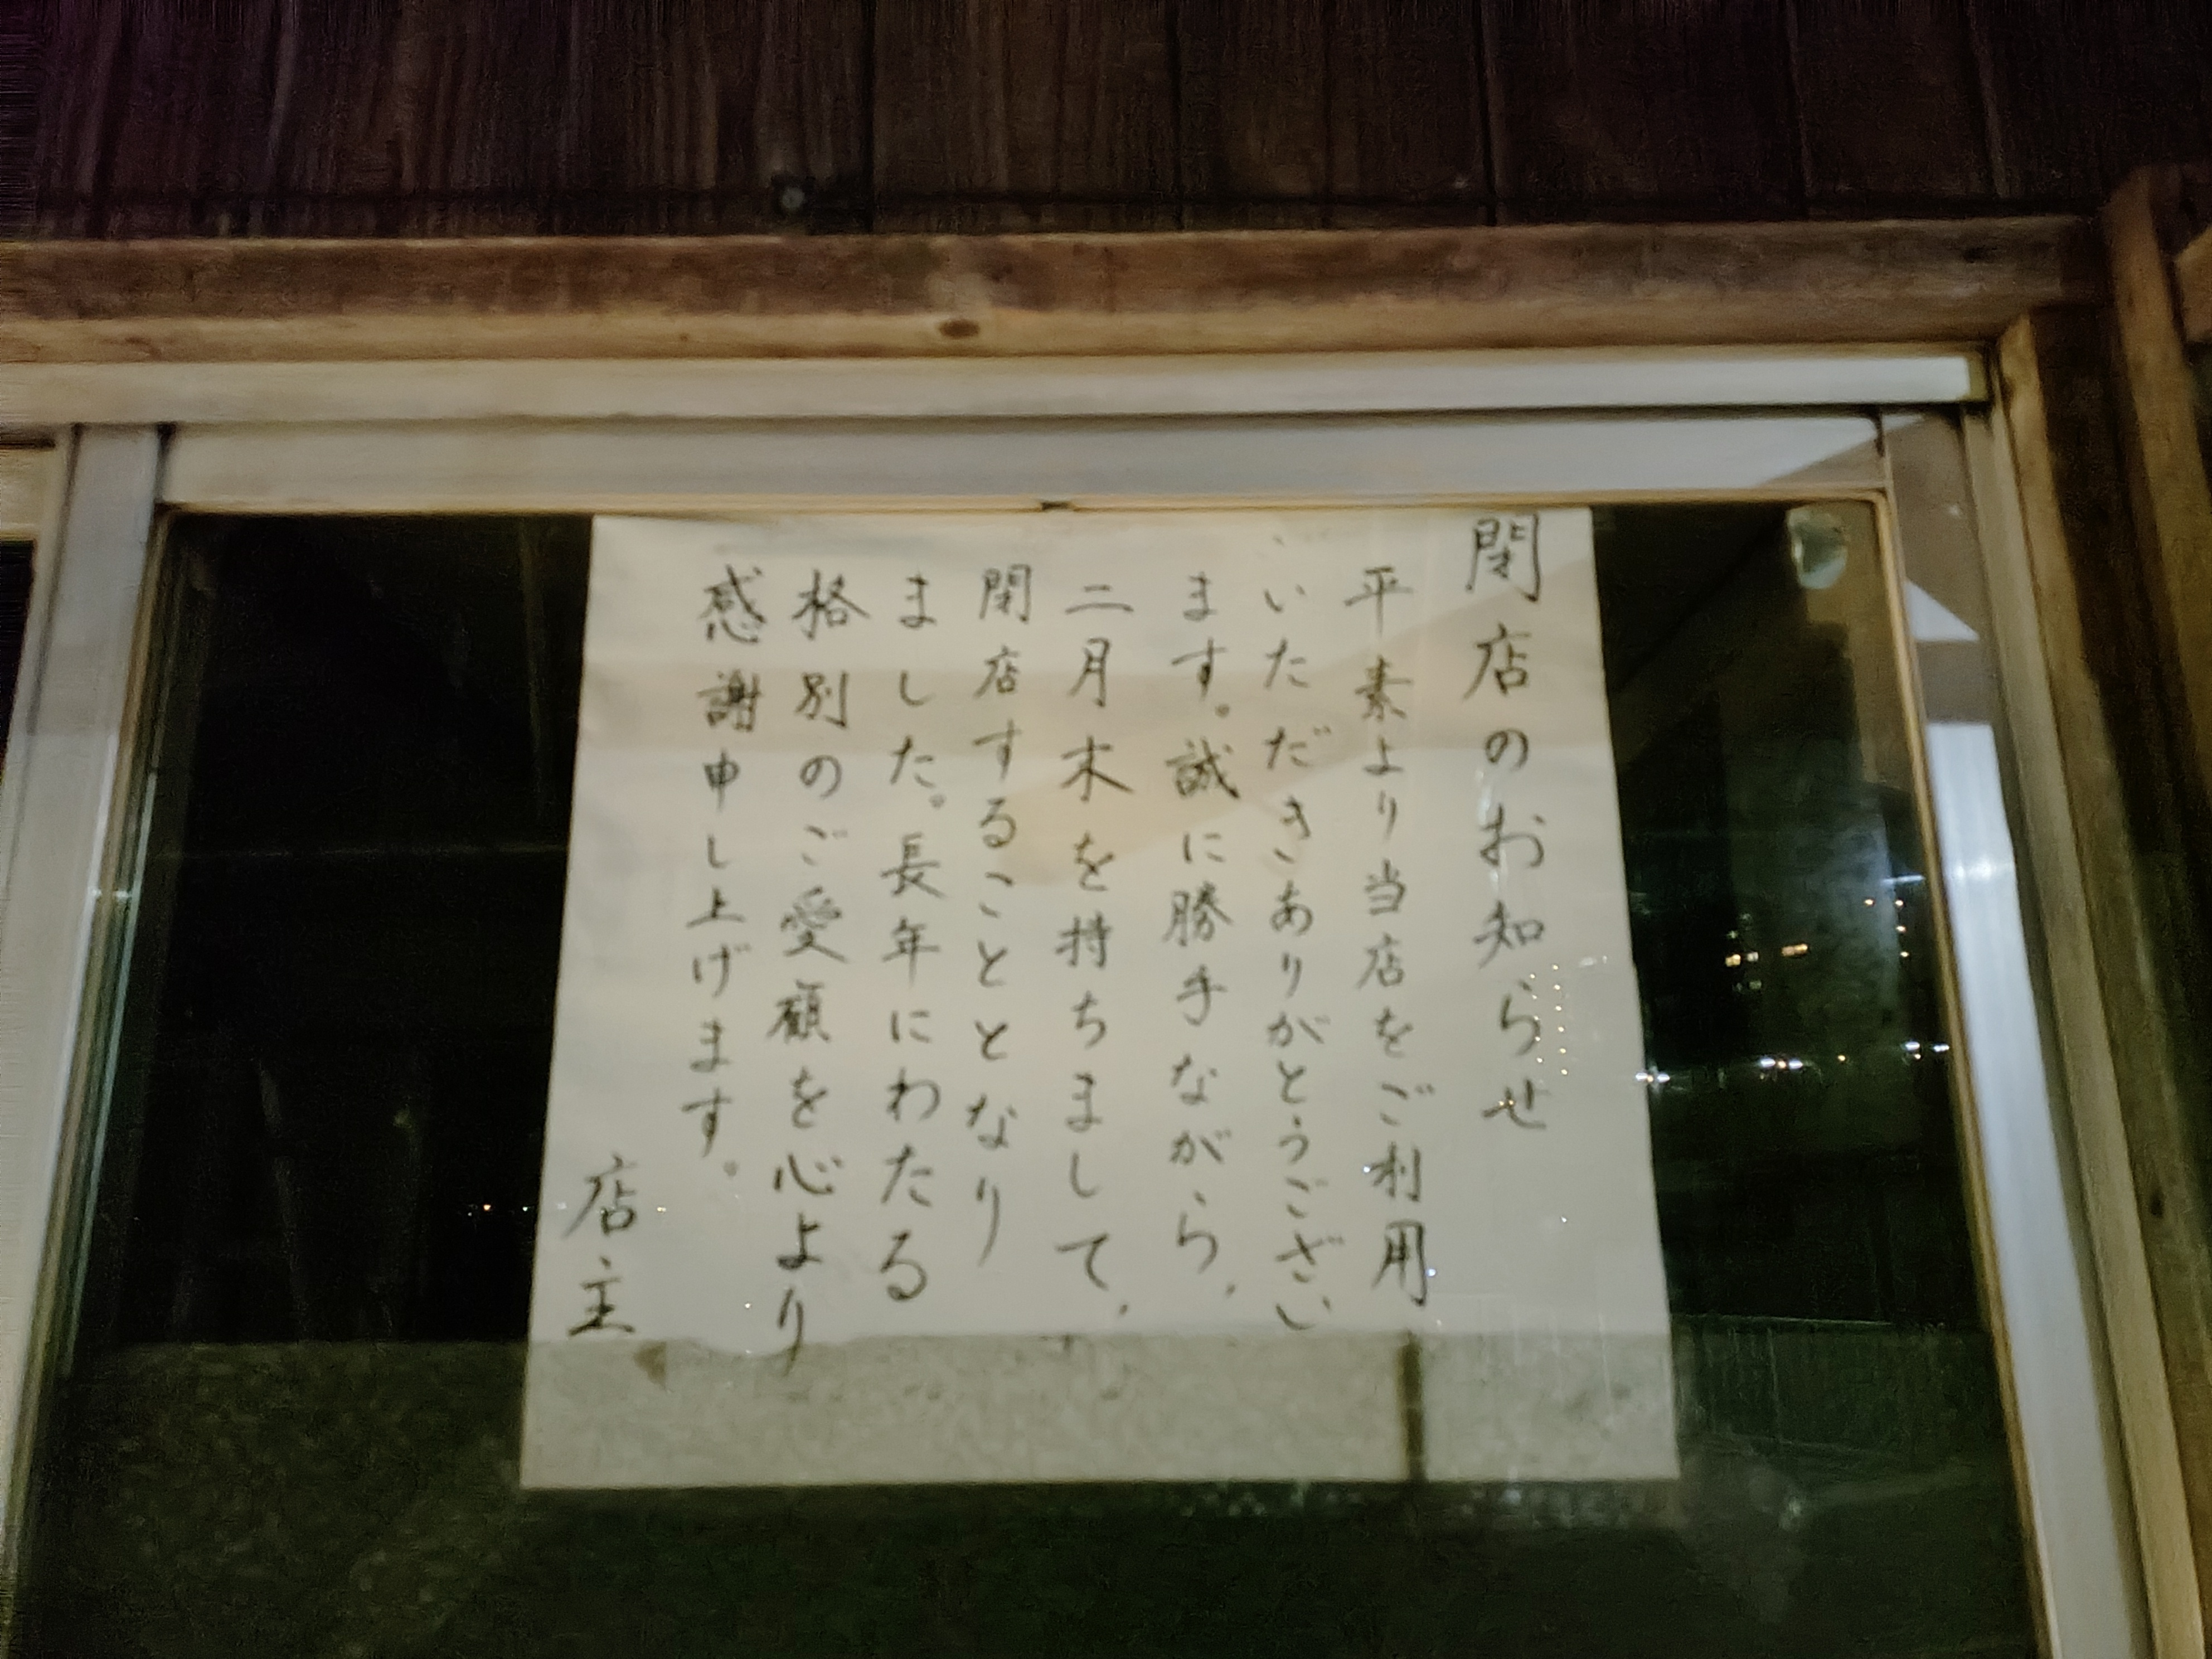 閉店のお知らせ
平素より当店をご利用
いただきありがとうござい
ます。誠に勝手ながら、
二月末を持ちまして、
閉店することとなり
ました。長年にわたる
格別のご愛顧を心より
感謝申し上げます。
店主